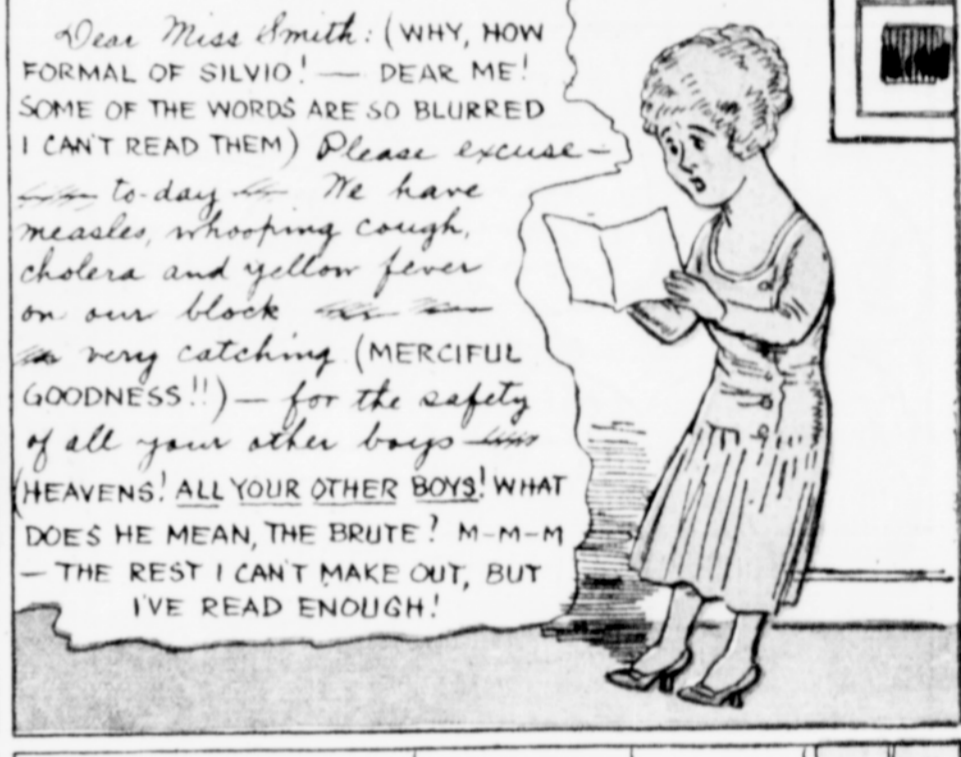 Dear Miss Smith: (WHY, HOW
FORMAL OF SILVIO! — DEAR ME!
SOME OF THE WORDS ARE SO BLURRED
I CAN'T READ THEM) Please excuse —
to-day We have
measles, whooping cough,
cholera and yellow fever
on our block
very catching (MERCIFUL
GOODNESS!!) — for the safety
of all your other boys
(HEAVENS! ALL YOUR OTHER BOYS! WHAT
DOES HE MEAN, THE BRUTE? M-M-M
— THE REST I CAN'T MAKE OUT, BUT
I'VE READ ENOUGH!